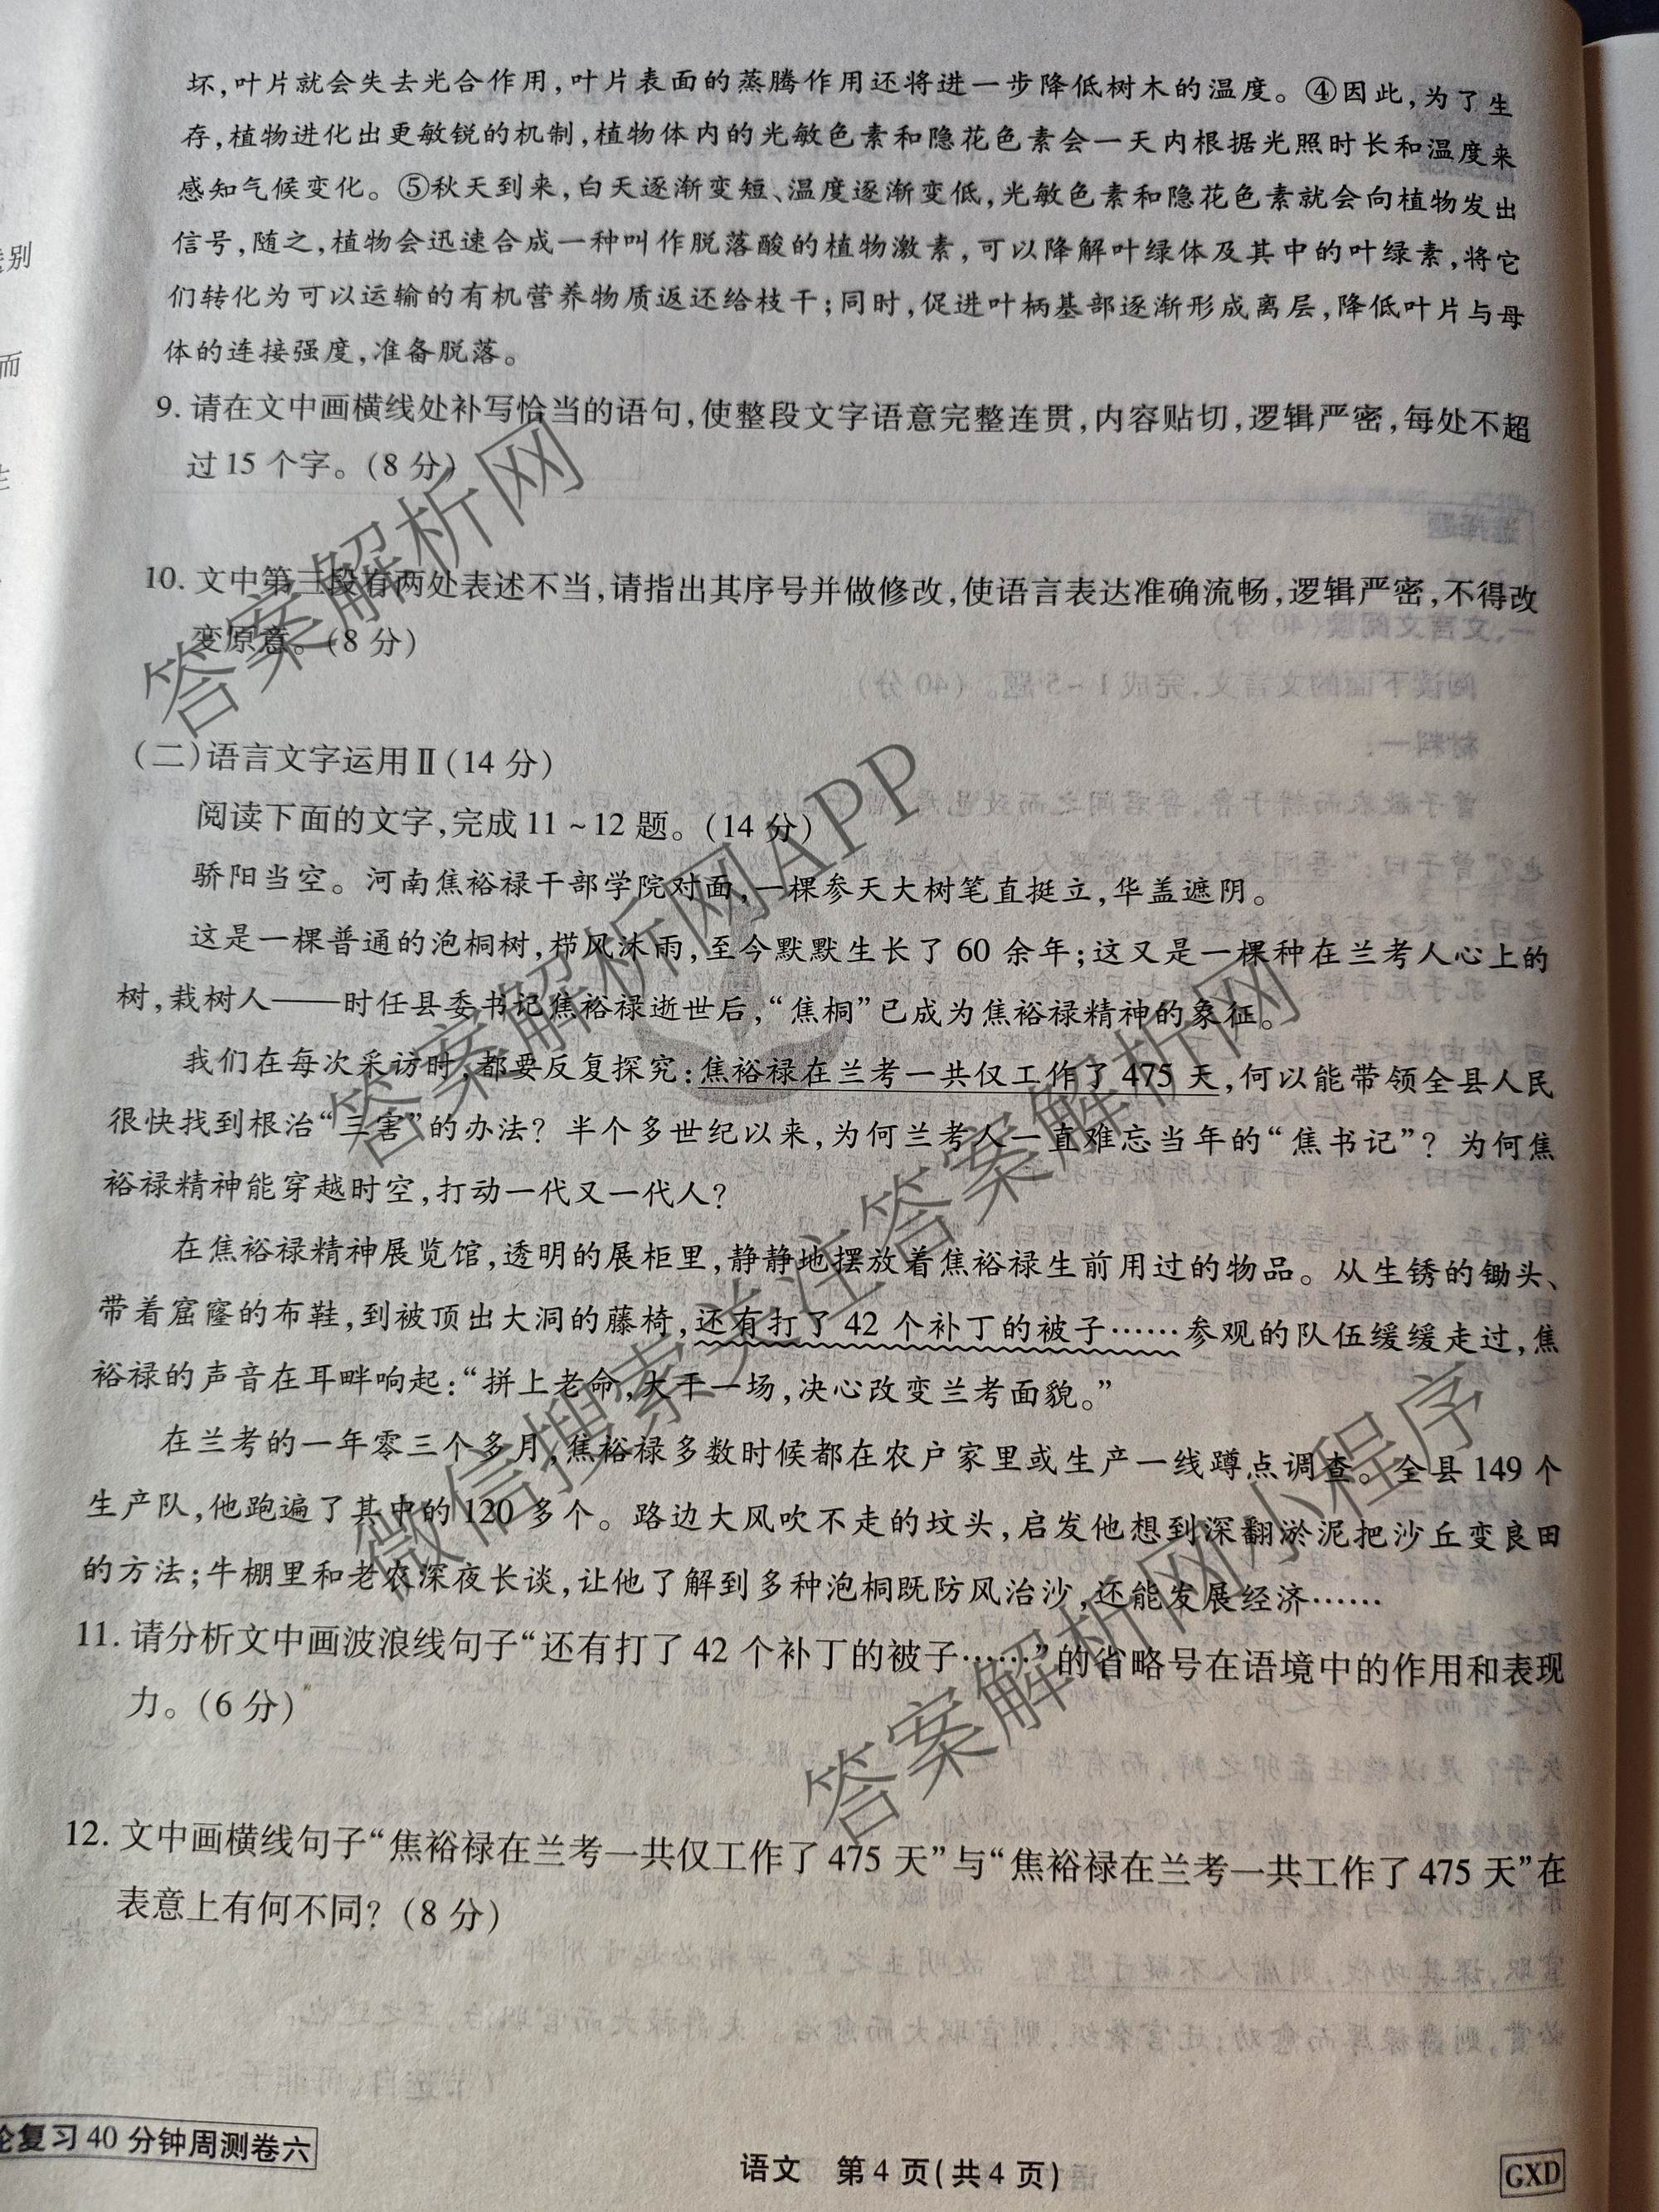 坏,叶片就会失去光合作用,叶片表面的蒸腾作用还将进一步降低树木的温度。④因此,为了生
存,植物进化出更敏锐的机制,植物体内的光敏色素和隐花色素会一天内根据光照时长和温度来
感知气候变化。⑤秋天到来,白天逐渐变短、温度逐渐变低,光敏色素和隐花色素就会向植物发出
信号,随之,植物会迅速合成一种叫作脱落酸的植物激素,可以降解叶绿体及其中的叶绿素,将它
们转化为可以运输的有机营养物质返还给枝干;同时,促进叶柄基部逐渐形成离层,降低叶片与母
体的连接强度,准备脱落。
9. 请在文中画横线处补写恰当的语句,使整段文字语意完整连贯,内容贴切,逻辑严密,每处不超
过15个字。(8分)
10. 文中第三段有两处表述不当,请指出其序号并做修改,使语言表达准确流畅,逻辑严密,不得改
变原意。(8分)
(二)语言文字运用Ⅱ(14分)
阅读下面的文字,完成11~12题。(14分)
骄阳当空。河南焦裕禄干部学院对面,一棵参天大树笔直挺立,华盖遮阴。
这是一棵普通的泡桐树,栉风沐雨,至今默默生长了60余年;这又是一棵种在兰考人心上的
树,栽树人——时任县委书记焦裕禄逝世后,“焦桐”已成为焦裕禄精神的象征。
我们在每次采访时,都要反复探究:焦裕禄在兰考一共仅工作了475天,何以能带领全县人民
很快找到根治“三害”的办法?半个多世纪以来,为何兰考人一直难忘当年的“焦书记”?为何焦
裕禄精神能穿越时空,打动一代又一代人?
在焦裕禄精神展览馆,透明的展柜里,静静地摆放着焦裕禄生前用过的物品。从生锈的锄头、
带着窟窿的布鞋,到被顶出大洞的藤椅,还有打了42个补丁的被子……参观的队伍缓缓走过,焦
裕禄的声音在耳畔响起:“拼上老命,大干一场,决心改变兰考面貌。”
在兰考的一年零三个多月,焦裕禄多数时候都在农户家里或生产一线蹲点调查。全县149个
生产队,他跑遍了其中的120多个。路边大风吹不走的坟头,启发他想到深翻淤泥把沙丘变良田
的方法;牛棚里和老农深夜长谈,让他了解到多种泡桐既防风治沙,还能发展经济……
11. 请分析文中画波浪线句子“还有打了42个补丁的被子……”的省略号在语境中的作用和表现
力。(6分)
12. 文中画横线句子“焦裕禄在兰考一共仅工作了475天”与“焦裕禄在兰考一共工作了475天”在
表意上有何不同?(8分)
复习40分钟周测卷六
语文 第4页(共4页)
GXD
答案解析网
答案解析网APP
微信搜索关注答案解析网
答案解析网小程序